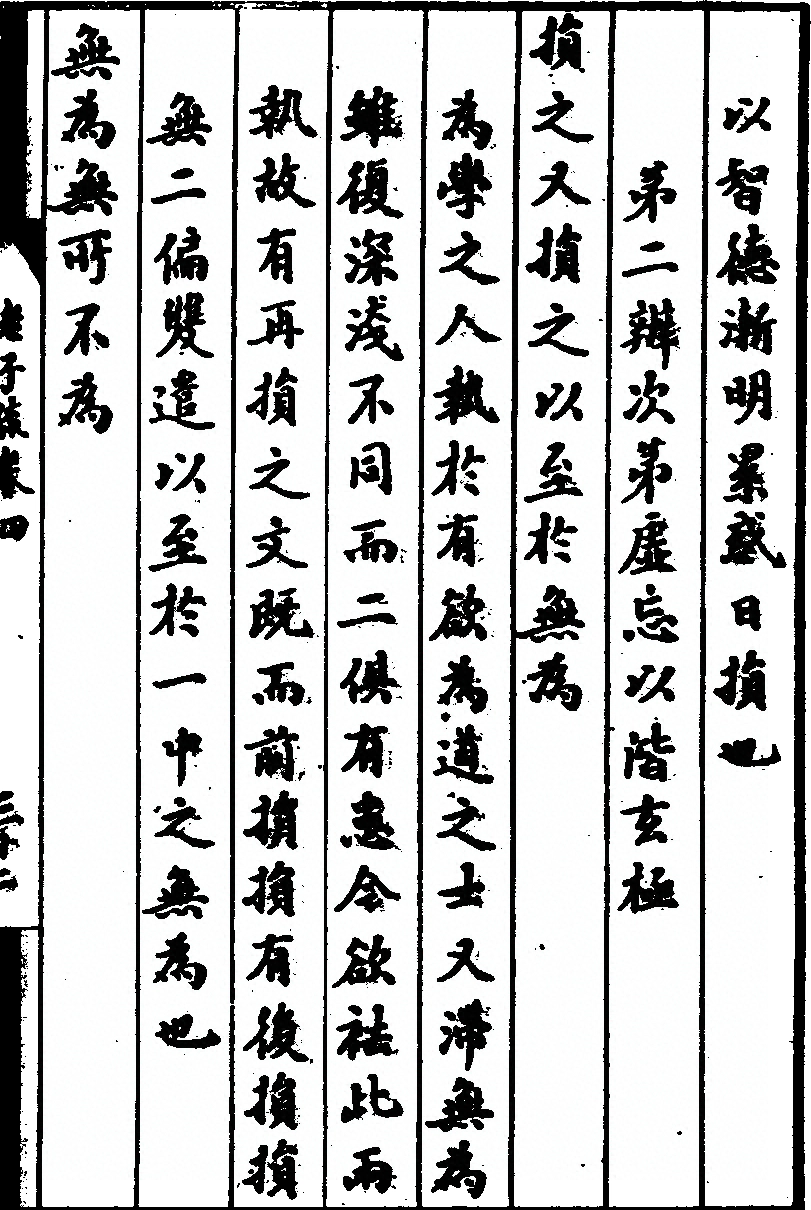 以智德漸明累惑日損也
第二辨次第虛忘以階玄極
損之又損之以至於無為
為學之人執於有欲為道之士又滯無為
雖復深淺不同而二俱有患今欲祛此兩
執故有再損之文既而前損損有後損損
無二偏雙遣以至於一中之無為也
無為無所不為
老子疏卷四
三十二